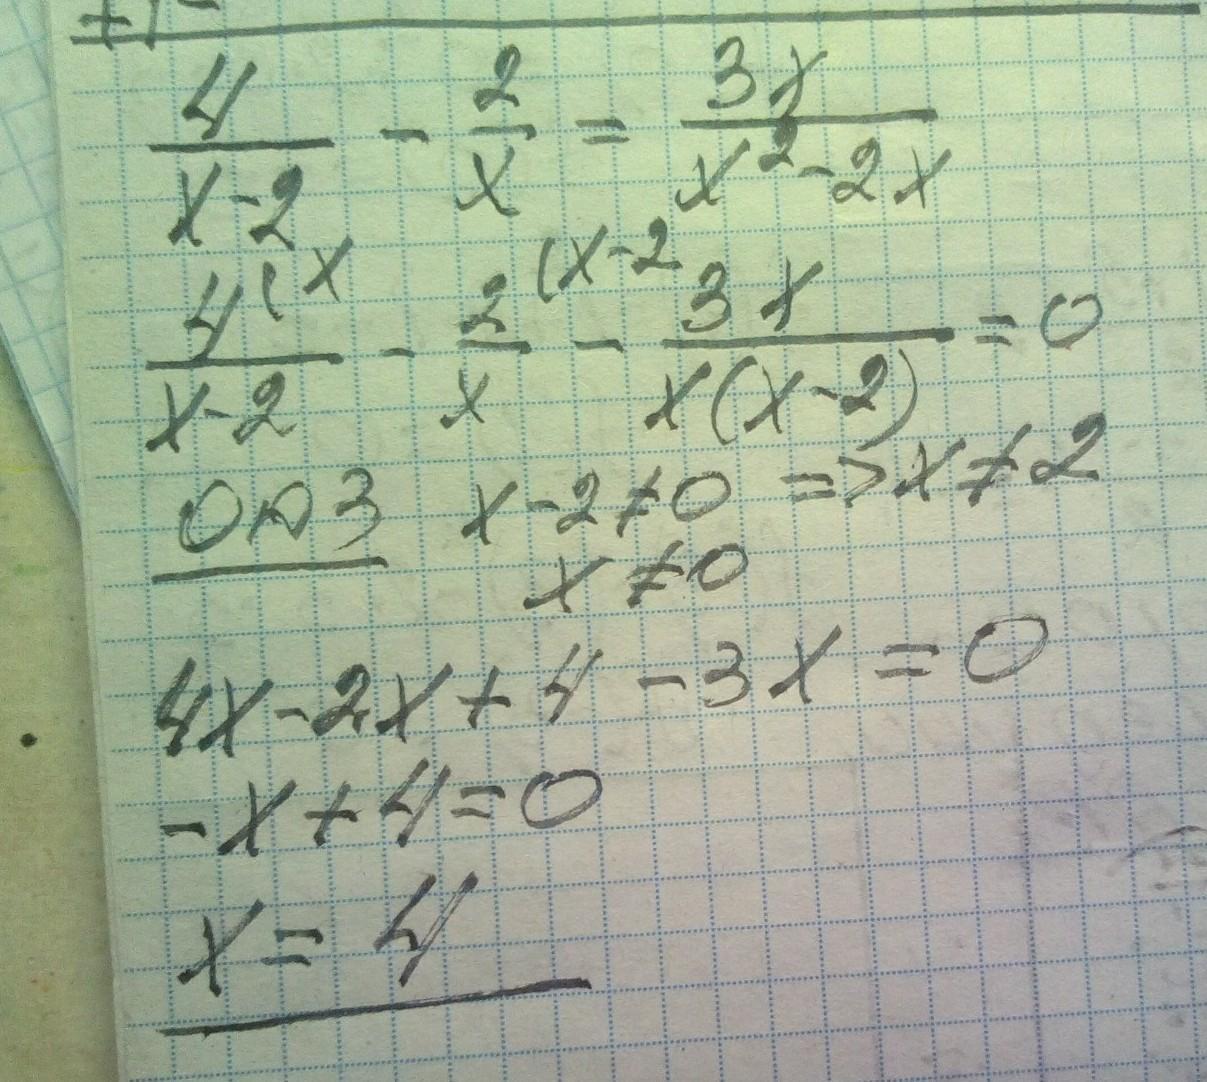 4/(x-2) - 2/x = 3x/(x²-2x)
4(x/(x-2) - 2(x-2/x - 3x/(x(x-2)) = 0
ОДЗ x-2≠0 => x≠2
x≠0
4x-2x+4-3x=0
-x+4=0
x=4